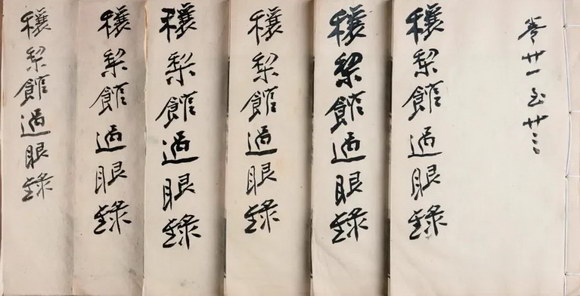 卷廿一至廿三
穰梨館過眼錄
穰梨館過眼錄
穰梨館過眼錄
穰梨館過眼錄
穰梨館過眼錄
穰梨館過眼錄